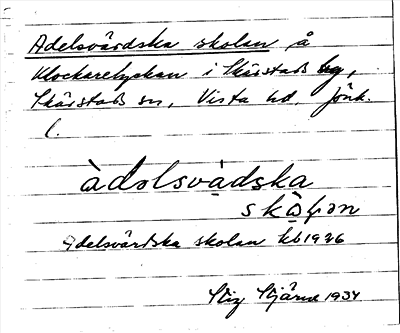 Adelsvärdska skolan å
Klockarelyckan i Skärstads by,
Skärstads sn, Vista hd, Jönk.
l.
àdəlsvà̤dska
skò̤ɫan
Adelsvärdska skolan kb 1926
Stig Stjärne 1934